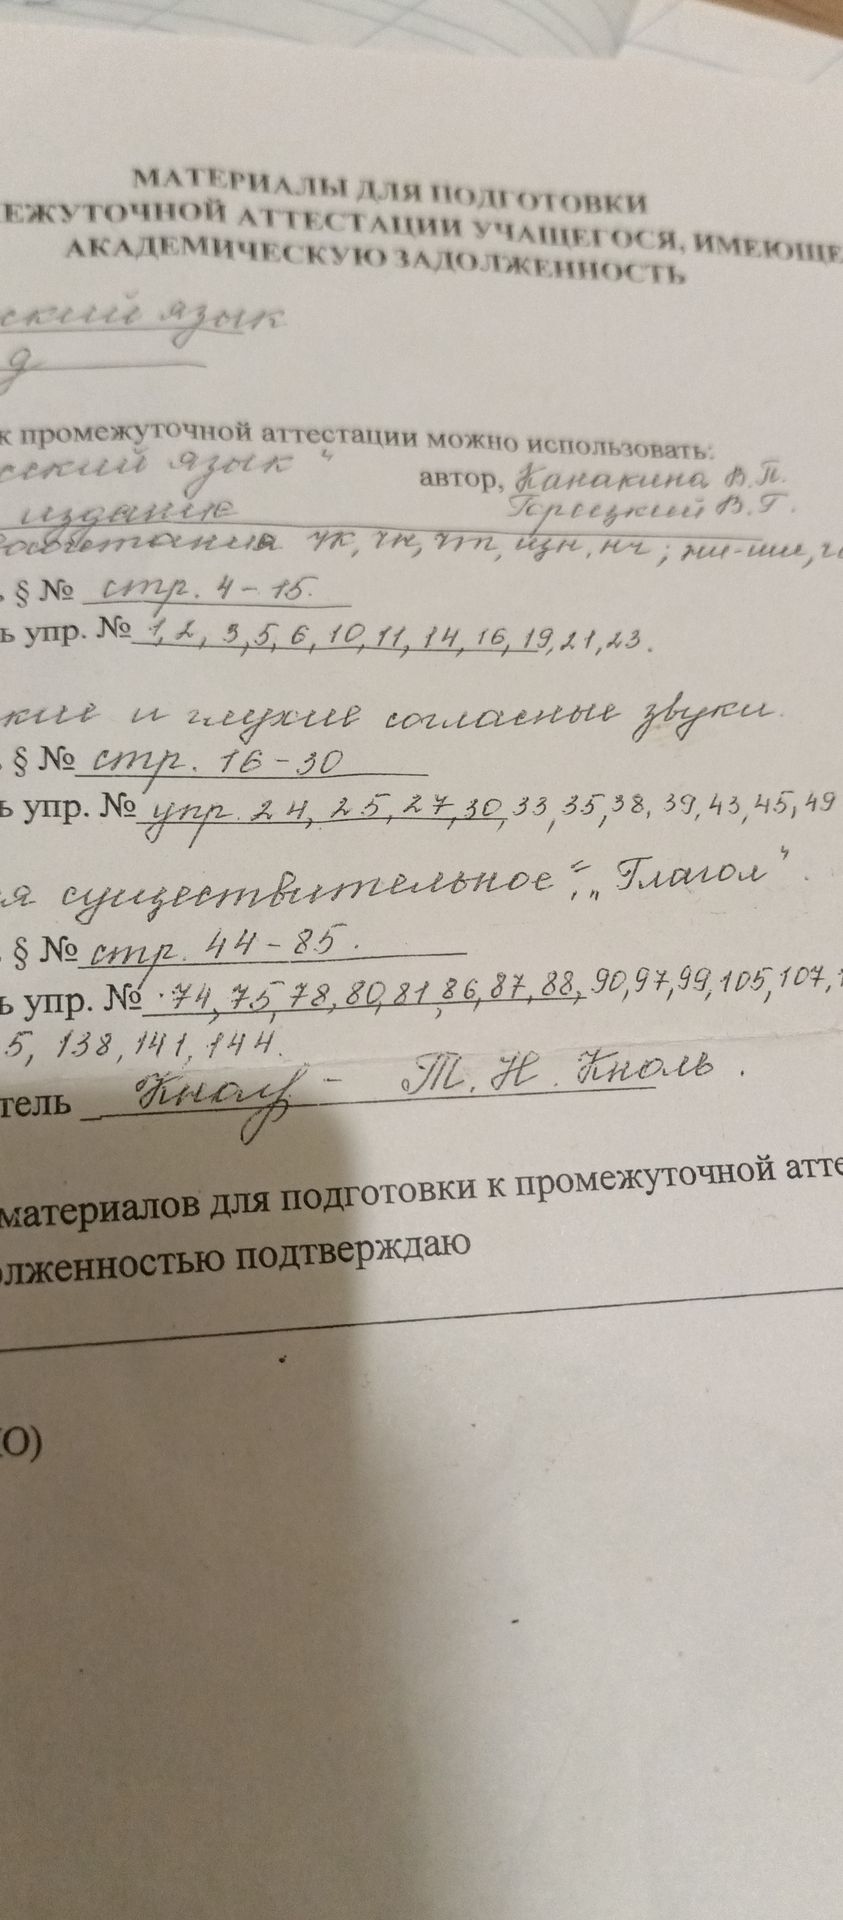 МАТЕРИАЛЫ ДЛЯ ПОДГОТОВКИ
ЕЖУТОЧНОЙ АТТЕСТАЦИИ УЧАЩЕГОСЯ, ИМЕЮЩЕ
АКАДЕМИЧЕСКУЮ ЗАДОЛЖЕННОСТЬ
ский язык
к промежуточной аттестации можно использовать:
сский язык" автор, Канакина В.П.
издание Горецкий В.Г.
чк, чн, чт, щн, нч; жи-ши,
, § № стр. 4-15.
ь упр. № 1, 2, 3, 5, 6, 10, 11, 14, 16, 19, 21, 23.
кие и глухие согласные звуки.
. § № стр. 16-30
ь упр. № упр. 24, 25, 27, 30, 33, 35, 38, 39, 43, 45, 49
я существительное", "Глагол".
. § № стр. 44-85.
ь упр. № 74, 75, 78, 80, 81, 86, 87, 88, 90, 97, 99, 105, 107, 1
5, 138, 141, 144.
тель Кноль - Т.Н. Кноль.
материалов для подготовки к промежуточной атте
олженностью подтверждаю
О)